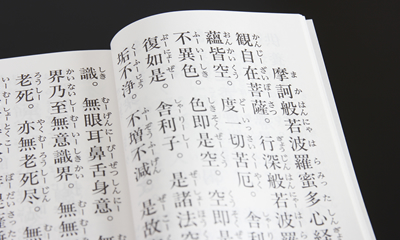 摩訶般若波羅蜜多心経
観自在菩薩。行深般若波羅
蘊皆空。度一切苦厄。舎利
不異色。色即是空。空即
復如是。舎利子。是諸法空
垢不浄。不増不減。是故
識。無眼耳鼻舌身意。
界乃至無意識界。無無
老死。亦無老死尽。